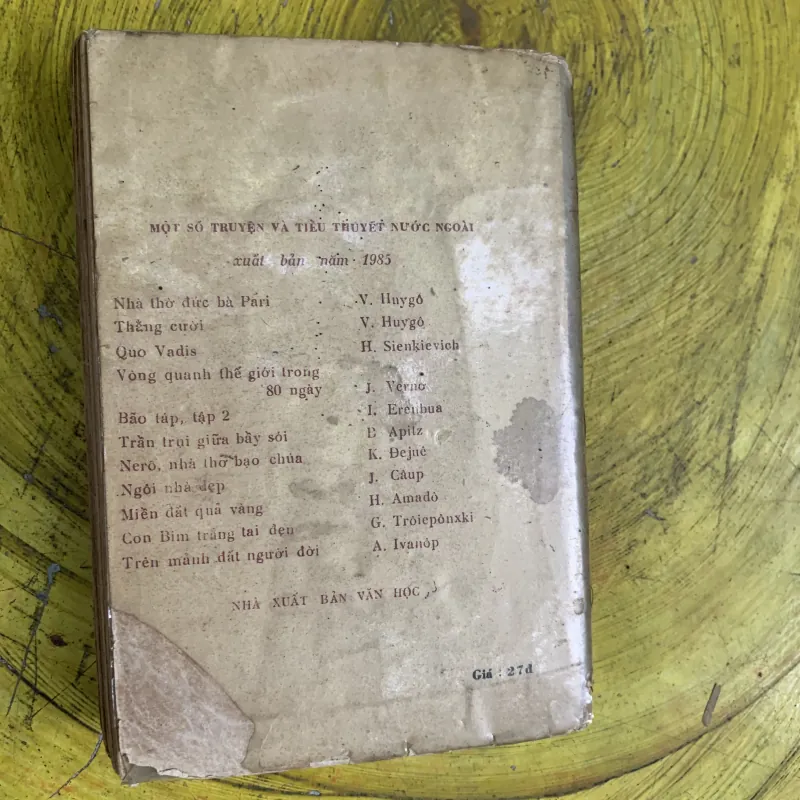 MỘT SỐ TRUYỆN VÀ TIỂU THUYẾT NƯỚC NGOÀI
xuất bản năm 1985
Nhà thờ đức bà Pari . . V. Huygô
Thằng cười . V. Huygô
Quo Vadis H. Sienkievich
Vòng quanh thế giới trong
80 ngày J. Verno
Bão táp, tập 2 . I. Erenbua
Trần trụi giữa bầy sói B Apitz
Nerô, nhà thơ bạo chúa K. Đejuê
Ngôi nhà đẹp J. Câup
Miền đất quả vàng H. Amađô
Con Bim trắng tai đen G. Trôiepônxki
Trên mảnh đất người đời A. Ivanôp
NHÀ XUẤT BẢN VĂN HỌC
Giá : 27đ